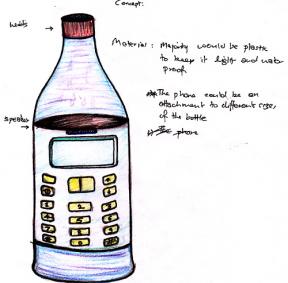 Concept:
Material: Majority would be plastic
to keep it light and water
proof.
speaker
The phone could be an
attachment to different size,
of the bottle
phone